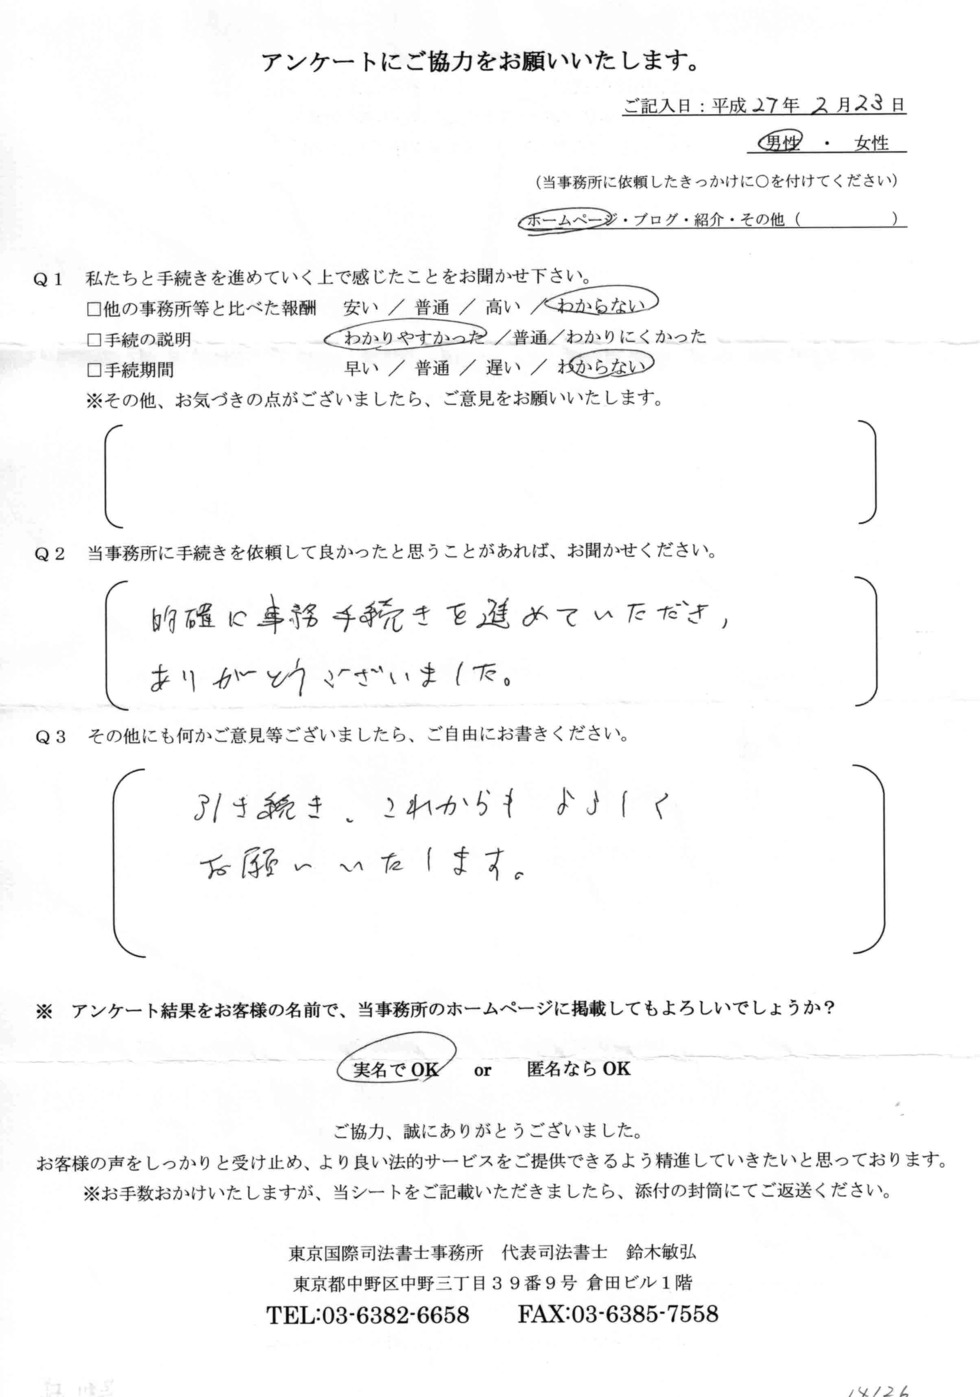 アンケートにご協力をお願いいたします。
ご記入日：平成27年2月23日
男性 ・ 女性
（当事務所に依頼したきっかけに○を付けてください）
ホームページ・ブログ・紹介・その他（ ）
Ｑ１ 私たちと手続きを進めていく上で感じたことをお聞かせ下さい。
□他の事務所等と比べた報酬 安い ／ 普通 ／ 高い ／ わからない
□手続の説明 わかりやすかった ／普通／わかりにくかった
□手続期間 早い ／ 普通 ／ 遅い ／ わからない
※その他、お気づきの点がございましたら、ご意見をお願いいたします。
Ｑ２ 当事務所に手続きを依頼して良かったと思うことがあれば、お聞かせください。
的確に事務手続きを進めていただき，
ありがとうございました。
Ｑ３ その他にも何かご意見等ございましたら、ご自由にお書きください。
引き続き、これからもよろしく
お願いいたします。
※ アンケート結果をお客様の名前で、当事務所のホームページに掲載してもよろしいでしょうか？
実名でOK or 匿名ならOK
ご協力、誠にありがとうございました。
お客様の声をしっかりと受け止め、より良い法的サービスをご提供できるよう精進していきたいと思っております。
※お手数おかけいたしますが、当シートをご記載いただきましたら、添付の封筒にてご返送ください。
東京国際司法書士事務所 代表司法書士 鈴木敏弘
東京都中野区中野三丁目３９番９号 倉田ビル１階
TEL:03-6382-6658 FAX:03-6385-7558